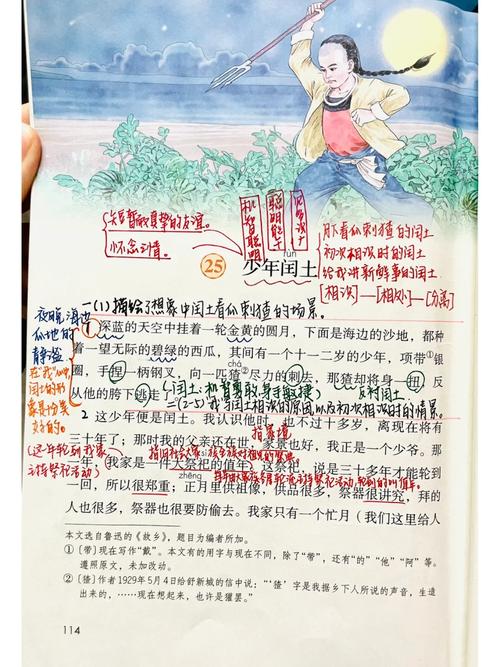 机智聪明
聪明能干
见多识广
短暂而真挚的友谊。
怀念之情。
月下看瓜刺猹的闰土
初次相识时的闰土
给我讲新鲜事的闰土
[相识]—[相处]—[分离]
rùn
25 少年闰土
一(1)描绘了想象中闰土看瓜刺猹的场景。
夜晚海边
瓜地的
静谧
1 深蓝的天空中挂着一轮金黄的圆月，下面是海边的沙地，都种
着一望无际的碧绿的西瓜，其间有一个十一二岁的少年，项带①银
圈，手捏一柄钢叉，向一匹猹②尽力的刺去，那猹却将身一扭，反
chá
从他的胯下逃走了。
(闰土：机智勇敢，身手敏捷)
反衬闰土
二(2-3)我与闰土相识的原因以及初次相识时的情景。
2 这少年便是闰土。我认识他时，也不过十多岁，离现在将有
三十年了；那时我的父亲还在世，家景也好，我正是一个少爷。那
指家境
一年，我家是一件大祭祀的值年。这祭祀，说是三十多年才能轮到
sì
zhēng
一回，所以很郑重；正月里供祖像，供品很多，祭器很讲究，拜的
人也很多，祭器也很要防偷去。我家只有一个忙月（我们这里给人
本文选自鲁迅的《故乡》，题目为编者所加。
①〔带〕现在写作“戴”。本文有的用字与现在不同，除了“带”，还有“的”“他”“阿”等。
遵照原文，未加改动。
②〔猹〕作者1929年5月4日给舒新城的信中说：“‘猹’字是我据乡下人所说的声音，生造
出来的，……现在想起来，也许是獾罢。”
114